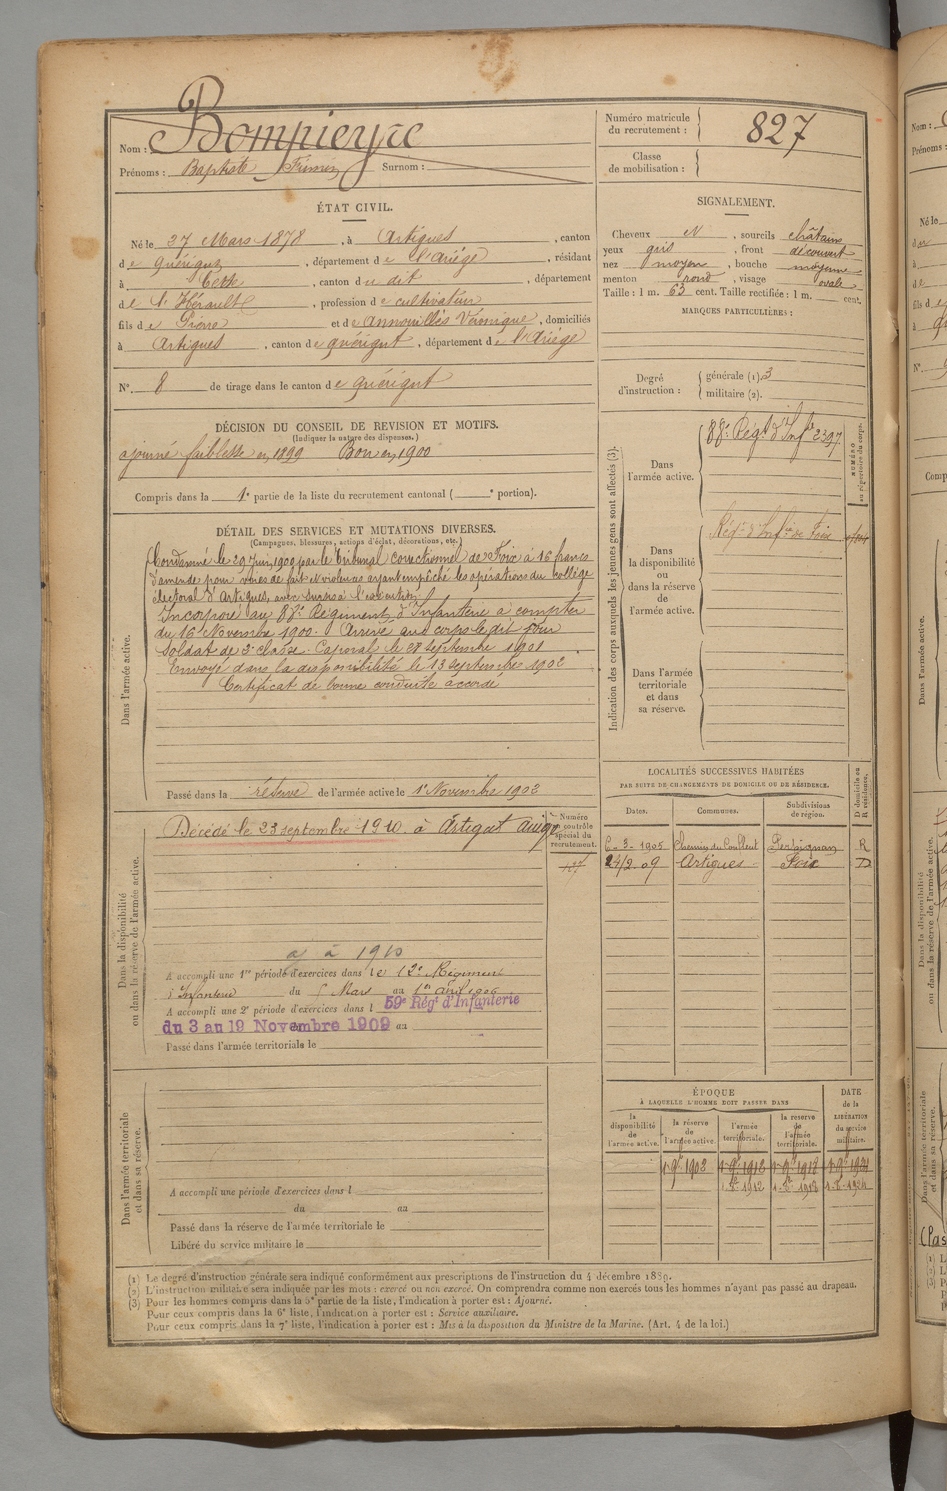 Nom : Bompieyre
Prénoms : Baptiste Firmin Surnom :
Numéro matricule du recrutement : 827
Classe de mobilisation :
ÉTAT CIVIL.
Né le 27 Mars 1878, à Artigues, canton
de Quérigut, département de l'Ariège, résidant
à Cette, canton du dit, département
de l'Hérault, profession de cultivateur
fils de Pierre et de Annouillès Véronique, domiciliés
à Artigues, canton de Quérigut, département de l'Ariège
N° 8 de tirage dans le canton de Quérigut
SIGNALEMENT.
Cheveux N, sourcils châtains
yeux gris, front découvert
nez moyen, bouche moyenne
menton rond, visage ovale
Taille : 1 m. 63 cent. Taille rectifiée : 1 m. cent.
MARQUES PARTICULIÈRES :
Degré d'instruction : générale (1). 3
militaire (2).
DÉCISION DU CONSEIL DE REVISION ET MOTIFS.
(Indiquer la nature des dispenses.)
ajourné faiblesse en 1899 Bon en 1900
Compris dans la 1e partie de la liste du recrutement cantonal ( e portion).
DÉTAIL DES SERVICES ET MUTATIONS DIVERSES.
(Campagnes, blessures, actions d'éclat, décorations, etc.)
Condamné le 29 Juin 1900 par le tribunal correctionnel de Foix à 16 francs
d'amende pour voies de fait et violences ayant empêché les opérations du collège
électoral d'Artigues, avec sursis à l'exécution
Incorporé au 88e Régiment d'Infanterie à compter
du 16 Novembre 1900. Arrivé au corps le dit jour
Soldat de 2e classe. Caporal le 28 septembre 1901
Envoyé dans la disponibilité le 13 septembre 1902
Certificat de bonne conduite accordé
Dans l'armée active.
Passé dans la réserve de l'armée active le 1 Novembre 1902
Indication des corps auxquels les jeunes gens sont affectés (3).
Dans l'armée active.
88e Régt d'Infie 2397
NUMÉRO au répertoire du corps.
Dans la disponibilité ou dans la réserve de l'armée active.
Régt d'Infie de Foix
Dans l'armée territoriale et dans sa réserve.
LOCALITÉS SUCCESSIVES HABITÉES
PAR SUITE DE CHANGEMENTS DE DOMICILE OU DE RÉSIDENCE.
Dates. Communes. Subdivisions de région. D domicile ou R résidence.
6-3-1905 Perpignan R
24/2-09 Artigues Foix D
Dans la disponibilité ou dans la réserve de l'armée active.
Décédé le 23 septembre 1910 à Artigat Ariège
Numéro contrôle spécial du recrutement.
a à 1910
A accompli une 1re période d'exercices dans le 12e Régiment
d'Infanterie du 5 Mars au 1er avril 1906
A accompli une 2e période d'exercices dans l 59e Régt d'Infanterie
du 3 au 19 Novembre 1909 au
Passé dans l'armée territoriale le
ÉPOQUE
À LAQUELLE L'HOMME DOIT PASSER DANS
DATE de la LIBÉRATION du service militaire.
la disponibilité de l'armée active. la réserve de l'armée active. l'armée territoriale. la réserve de l'armée territoriale.
Dans l'armée territoriale et dans sa réserve.
A accompli une période d'exercices dans l
du au
Passé dans la réserve de l'armée territoriale le
Libéré du service militaire le
(1) Le degré d'instruction générale sera indiqué conformément aux prescriptions de l'instruction du 4 décembre 1889.
(2) L'instruction militaire sera indiquée par les mots : exercé ou non exercé. On comprendra comme non exercés tous les hommes n'ayant pas passé au drapeau.
(3) Pour les hommes compris dans la 5e partie de la liste, l'indication à porter est : Ajourné.
Pour ceux compris dans la 6e liste, l'indication à porter est : Service auxiliaire.
Pour ceux compris dans la 7e liste, l'indication à porter est : Mis à la disposition du Ministre de la Marine. (Art. 4 de la loi.)